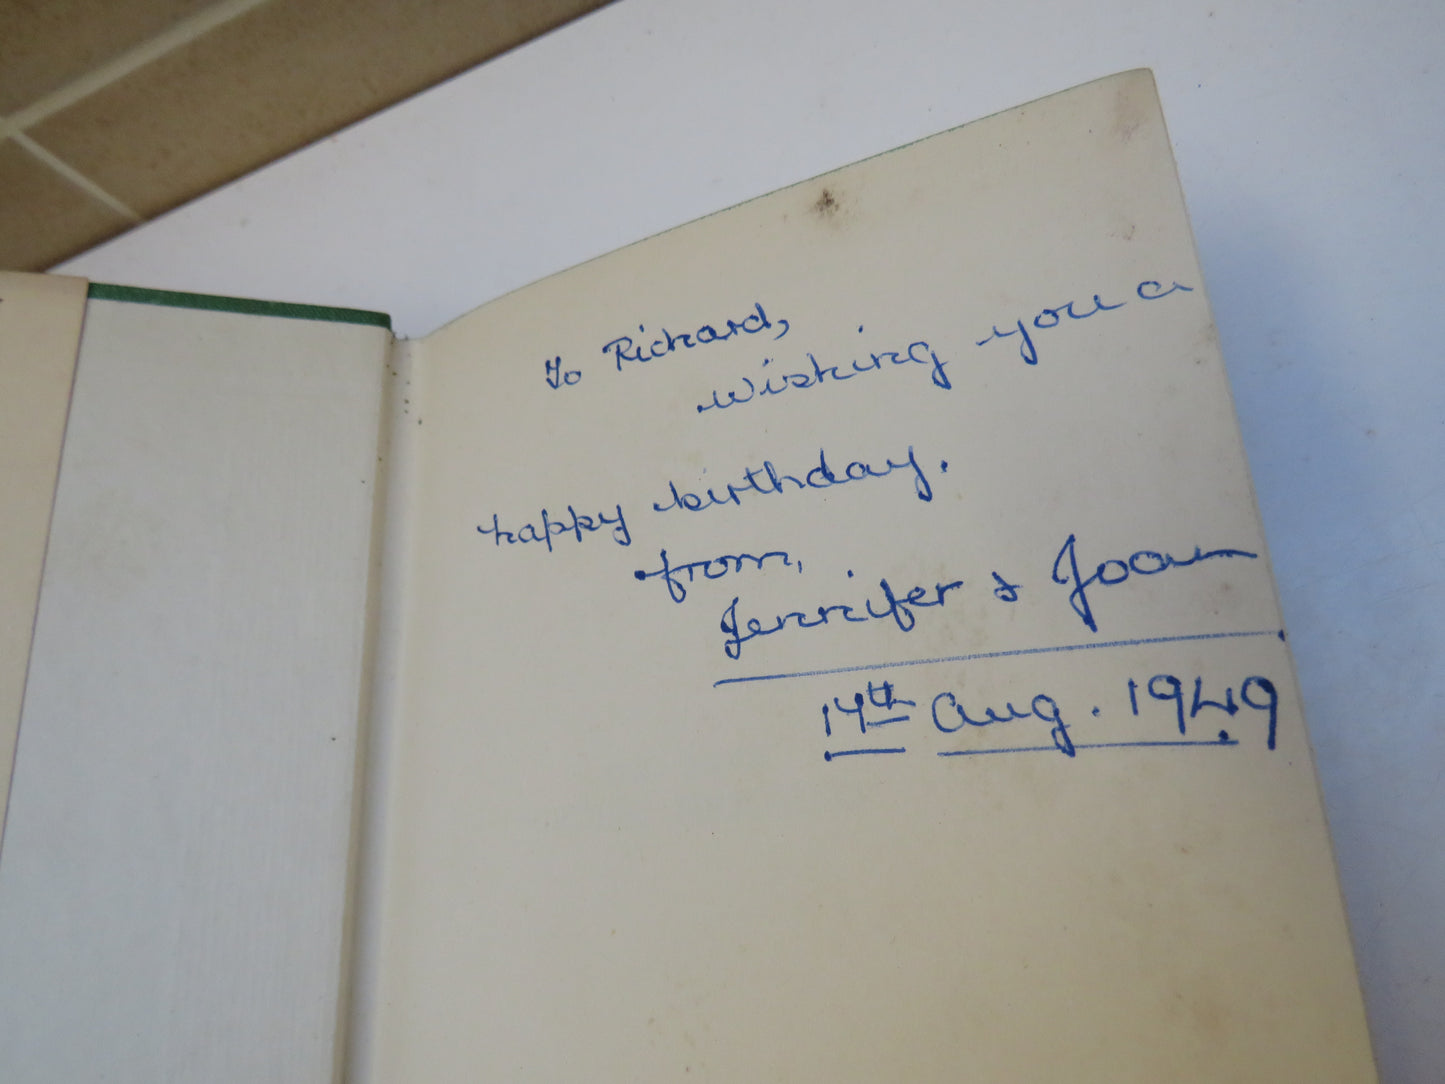 To Richard,
wishing you a
happy birthday.
from,
Jennifer & Joan
14th Aug. 1949